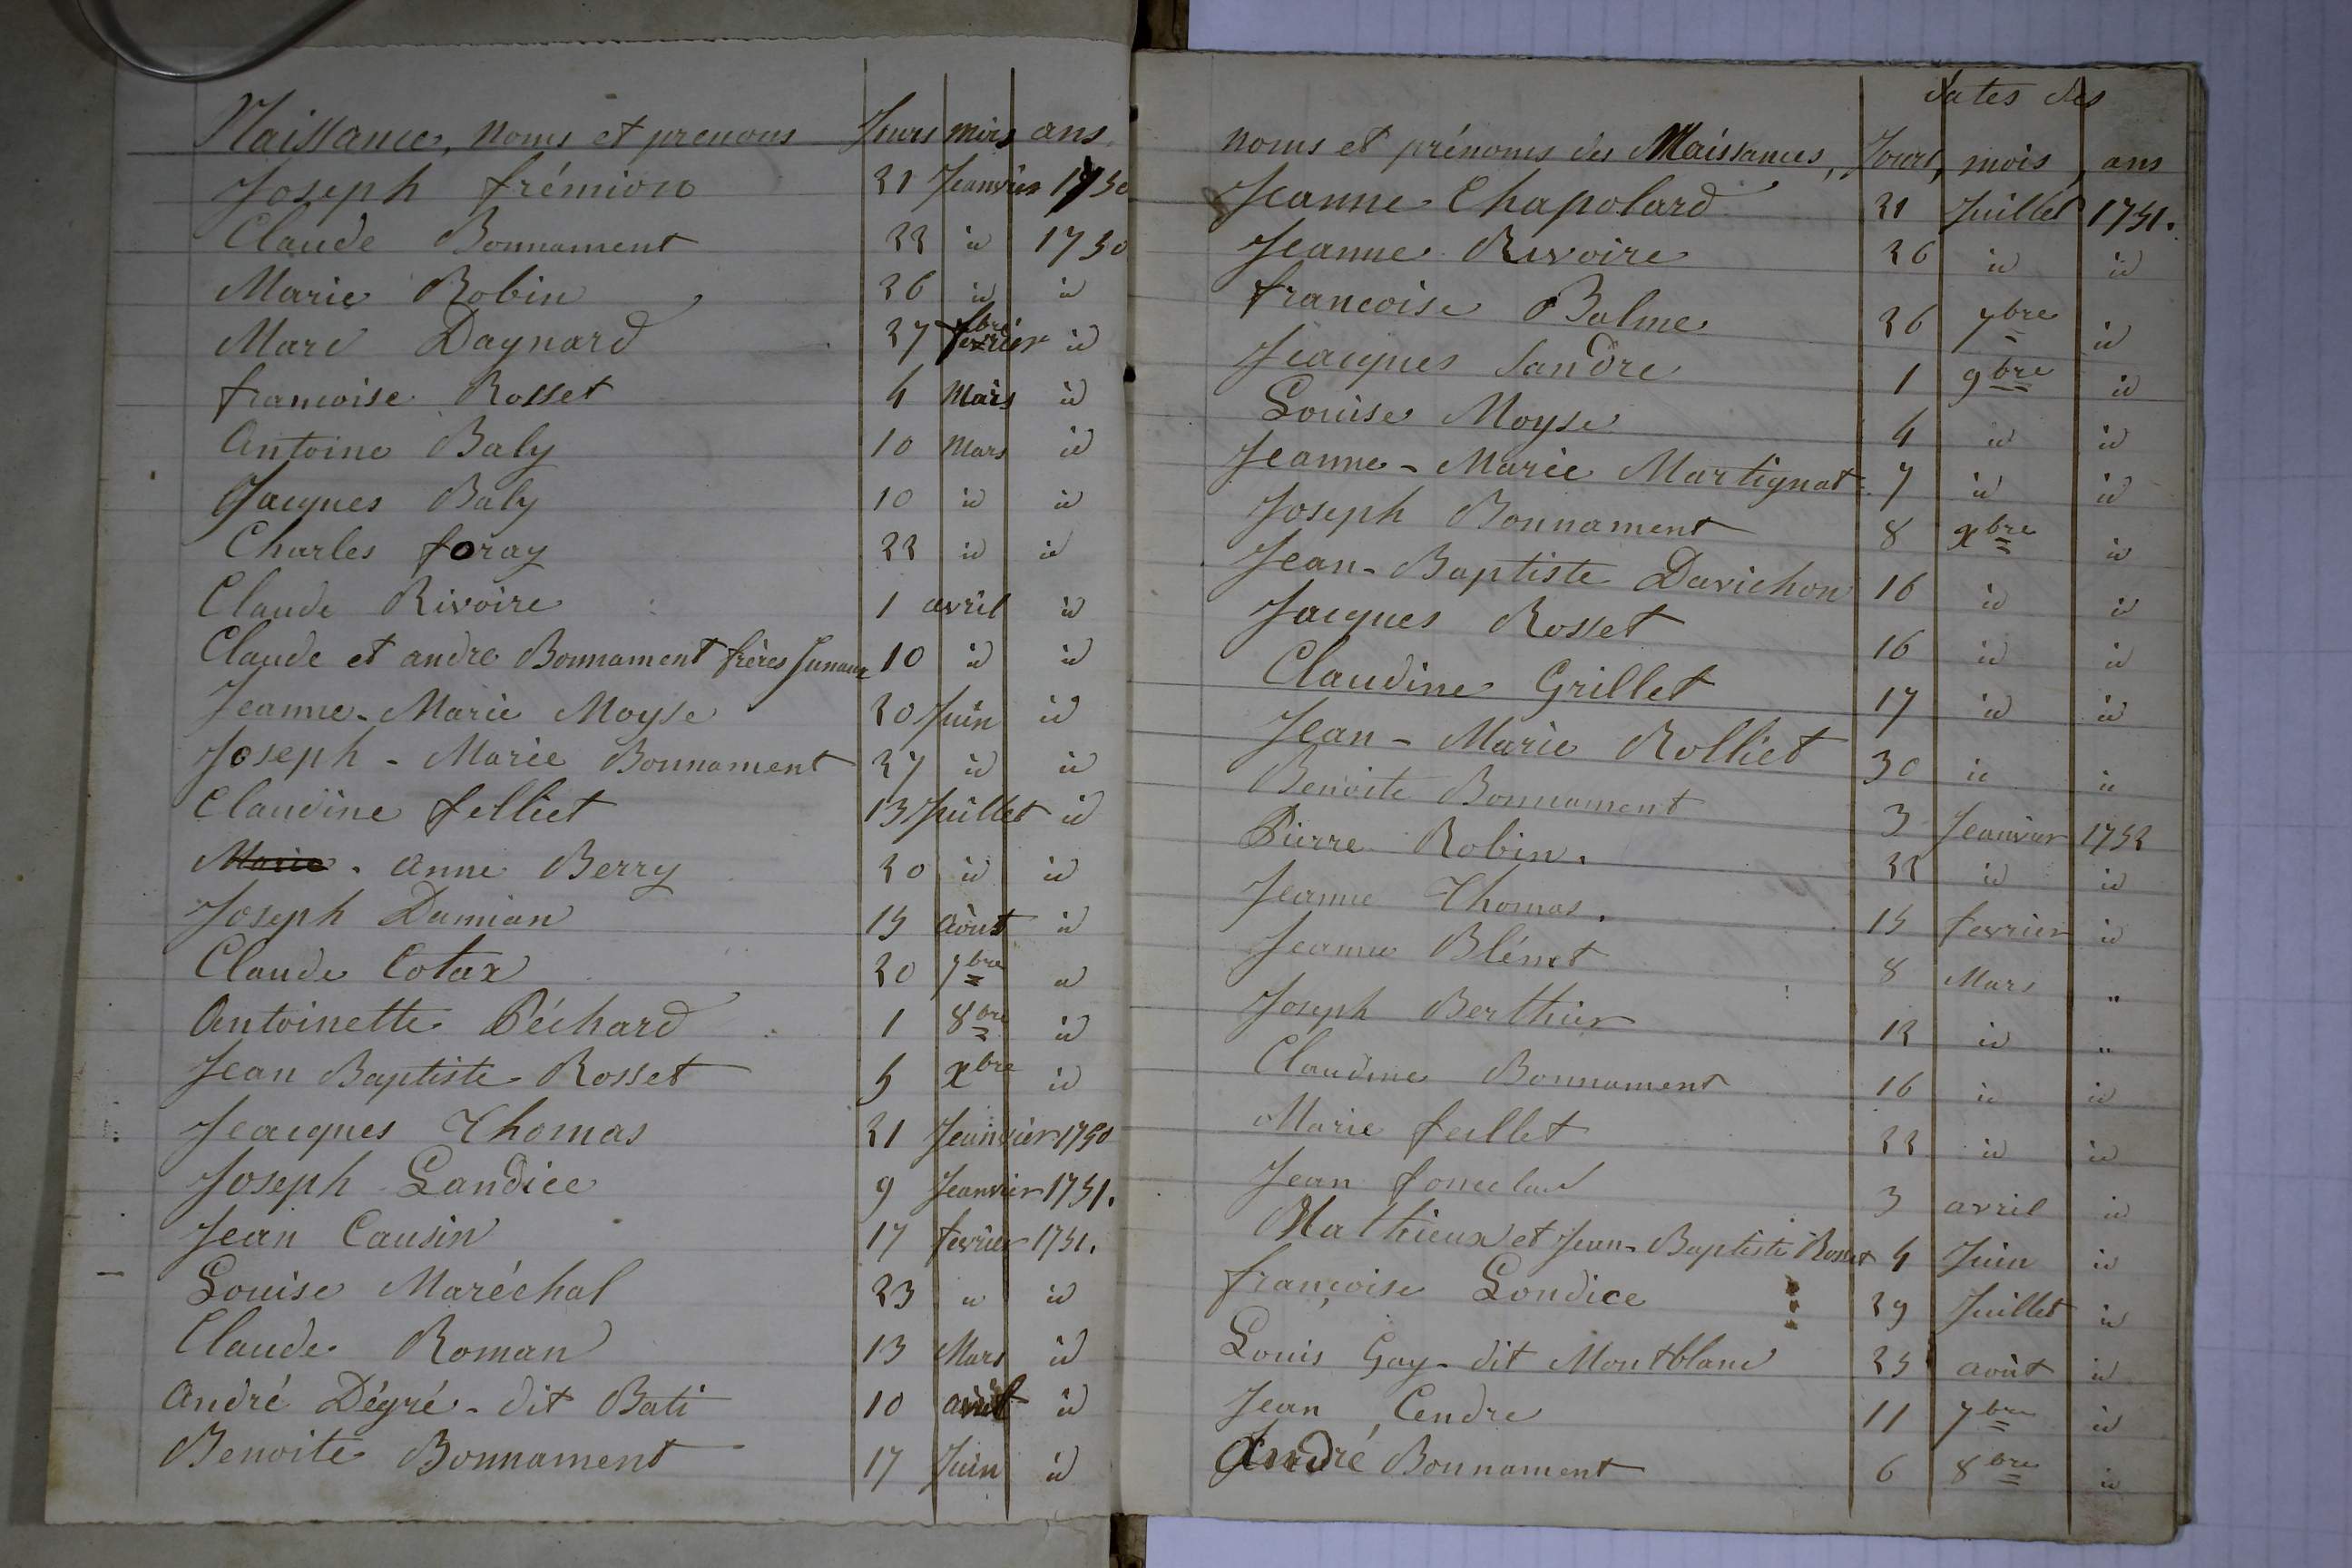 Naissance, noms et prenoms Jours mois ans.
Joseph frémion 21 Jeanvier 1750
Claude Bonnament 22 id 1750
Marie Robin 26 id id
Marc Daynard 27 fevrier id
francoise Rosset 4 Mars id
Antoine Baly 10 Mars id
Jacques Baly 10 id id
Charles foray 22 id id
Claude Rivoire 1 avril id
Claude et andre Bonnament frères Jumaux 10 id id
Jeanne-Marie Moyse 20 Juin id
Joseph-Marie Bonnament 27 id id
Claudine felliet 13 Juillet id
Marie. anne Berry 20 id id
Joseph Damian 15 août id
Claude Cotax 20 7bre id
Antoinette Péchard 1 8bre id
Jean Baptiste Rosset 5 xbre id
Jeacques Thomas 21 Jeanvier 1750
Joseph Landice 9 Jeanvier 1751.
Jean Causin 17 fevrier 1751.
Louise Maréchal 23 id id
Claude Roman 13 Mars id
André Dégré-dit Bati 10 avril id
Benoite Bonnament 17 Juin id
dates des
noms et prénoms des Naissances, Jours, mois, ans
Jeanne Chapolard 21 Juillet 1751.
Jeanne Rivoire 26 id id
francoise Balme 26 7bre id
Jeacques Sandre 1 9bre id
Louise Moyse 4 id id
Jeanne-Marie Martignat 7 id id
Joseph Bonnament 8 xbre id
Jean-Baptiste Davichon 16 id id
Jacques Rosset 16 id id
Claudine Grillet 17 id id
Jean-Marie Rolliet 30 id id
Benoite Bonnament 3 Jeanvier 1752
Pierre Robin. 22 id id
Jeanne Thomas. 15 fevrier id
Jeanne Blénet 8 Mars "
Joseph Berthier 12 id "
Claudine Bonnament 16 id id
Marie feillet 22 id id
Jean 3 avril id
Mathieux et Jean-Baptiste Rosset 4 Juin id
françoise Londice 29 Juillet id
Louis Gay-dit Montblanc 25 août id
Jean Cendre 11 7bre id
André Bonnament 6 8bre id